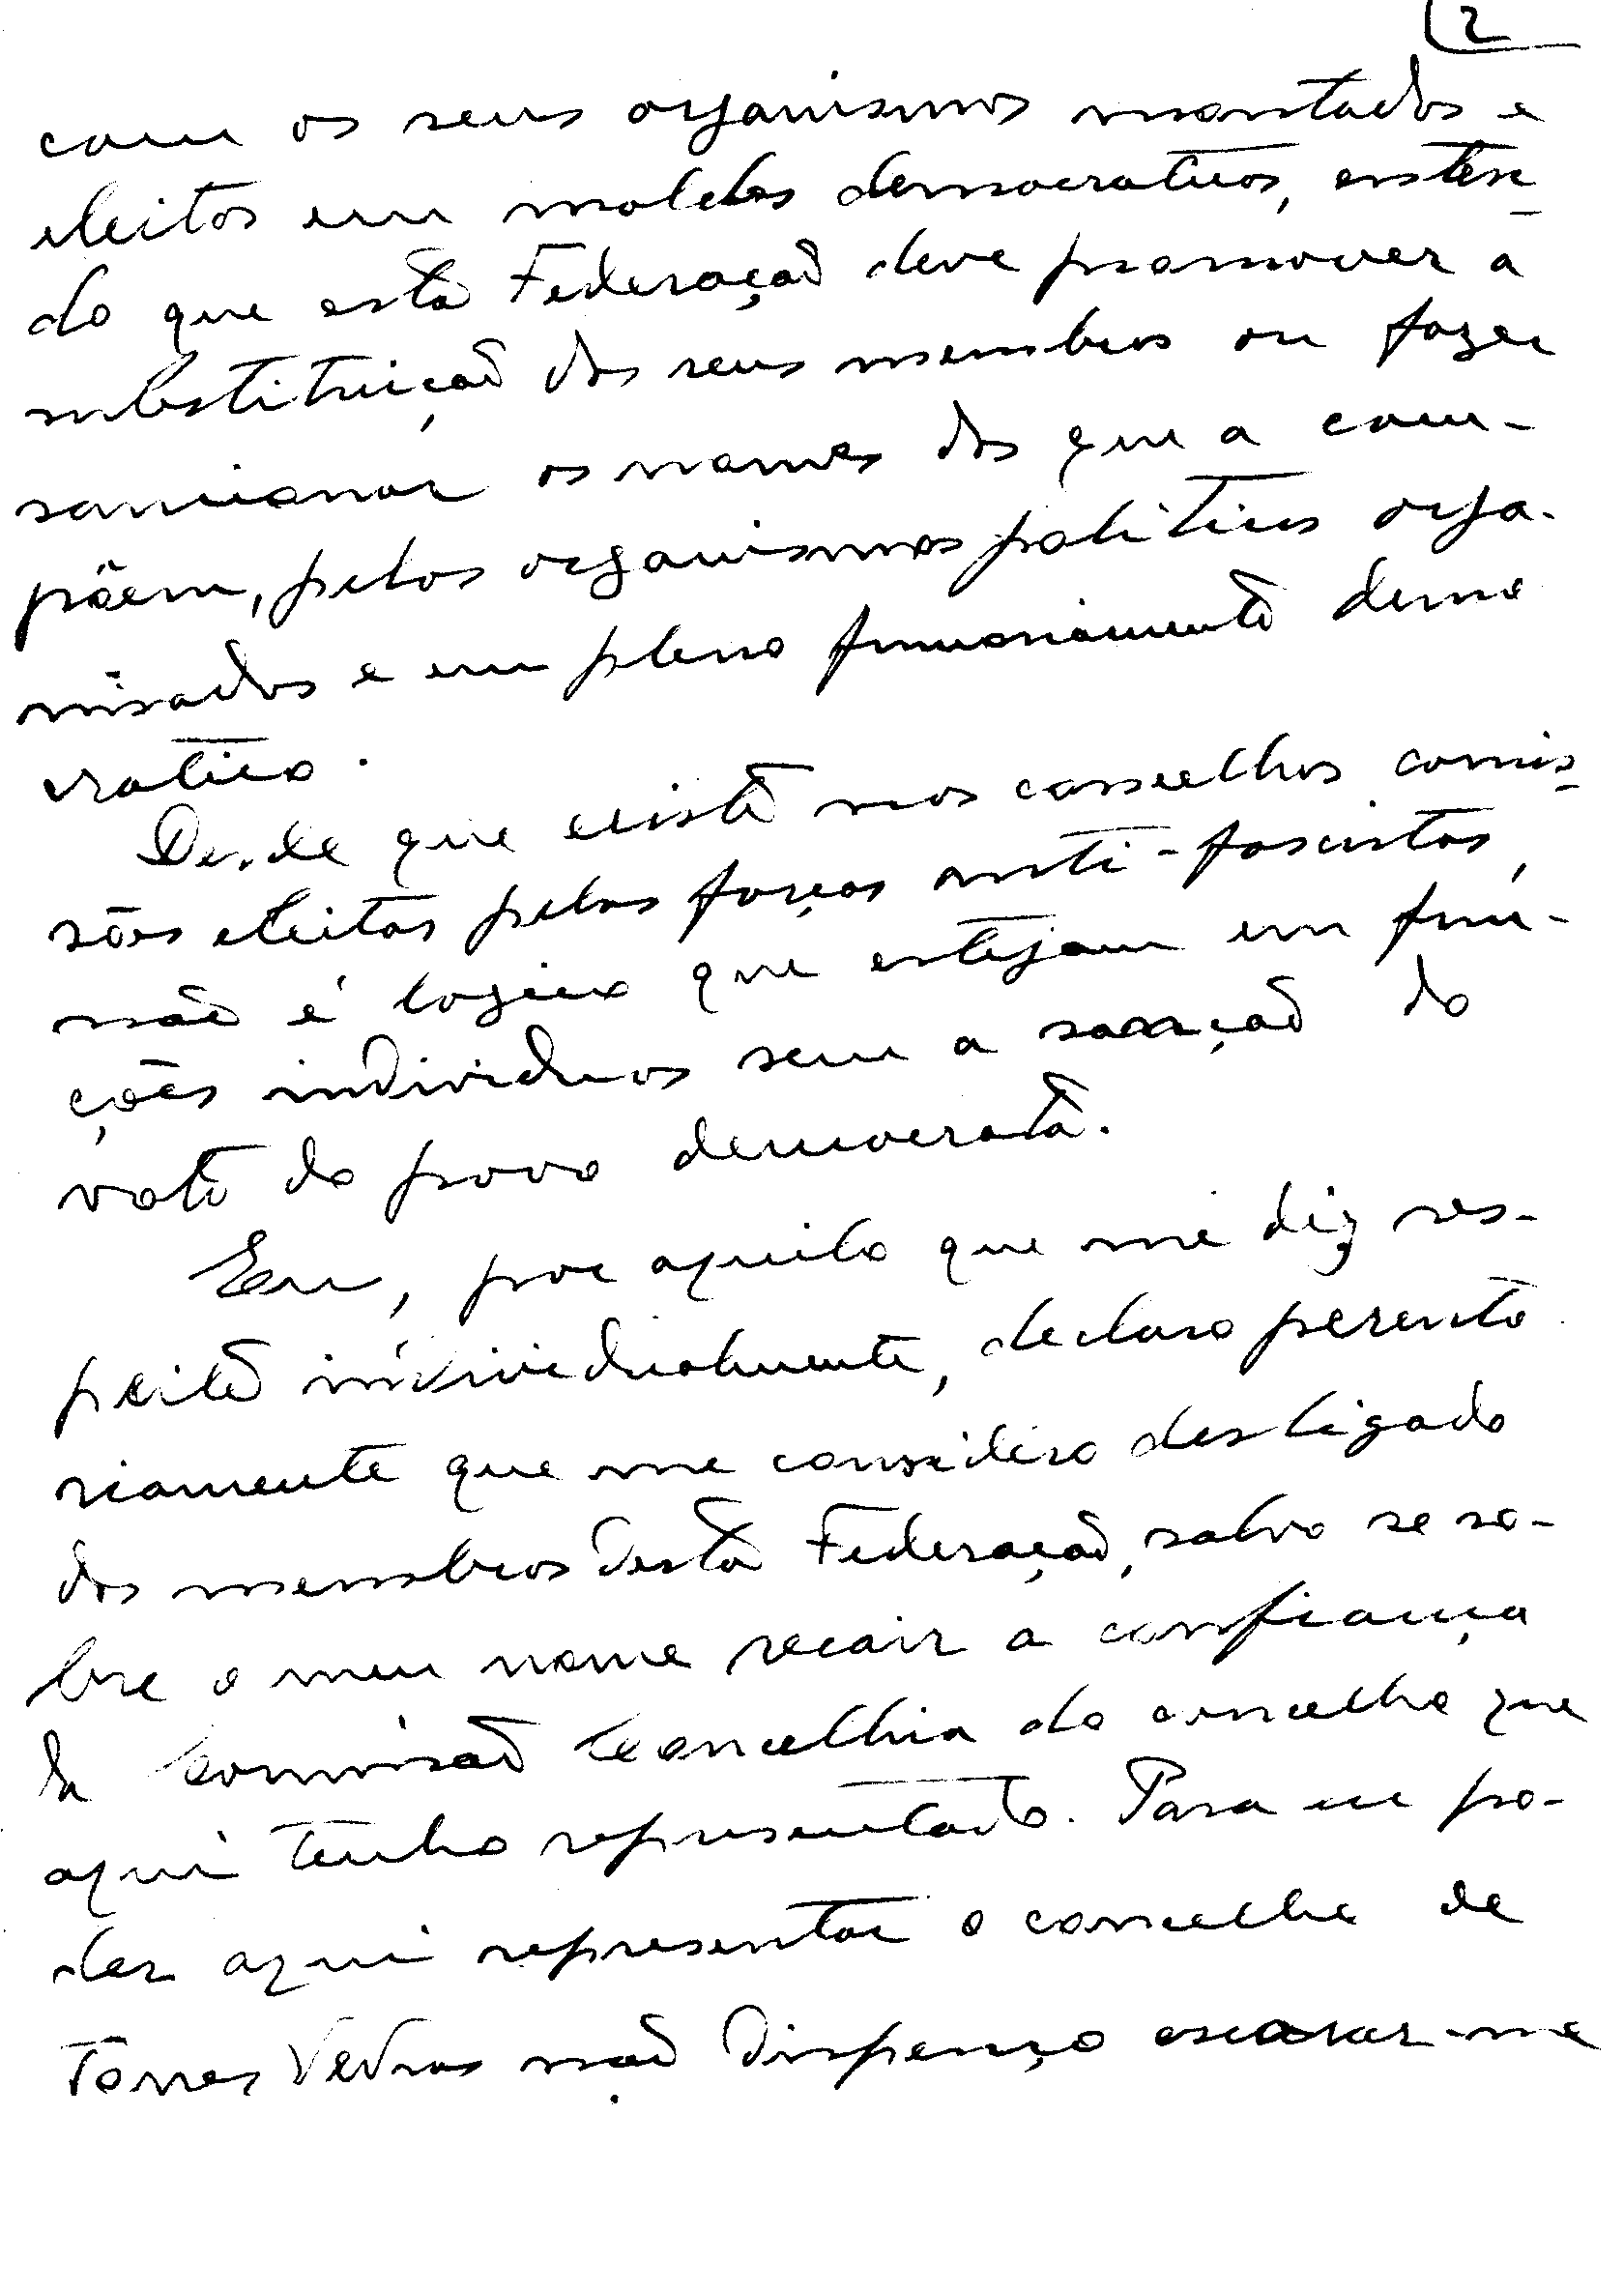 2
com os seus organismos montados e
eleitos em moldes democraticos, enten-
do que esta Federação deve promover a
substituição dos seus membros ou fazer
sancionar os nomes dos que a com-
põem, pelos organismos politicos orga-
nisados e em pleno funcionamento demo
cratico.
Desde que existe nos concelhos comis-
sões eleitas pelas forças anti-fascistas,
não é logico que estejam em fun-
ções individuos sem a sanção do
voto do povo democrata.
Eu, por aquilo que me diz res-
peito individualmente, declaro perento
riamente que me considero desligado
dos membros desta Federação, salvo se so-
bre o meu nome recair a confiança
da Comissão Concelhia do concelho que
aqui tenho representado. Para eu po-
der aqui representar o concelho de
Torres Vedras não dispenço escorar-me